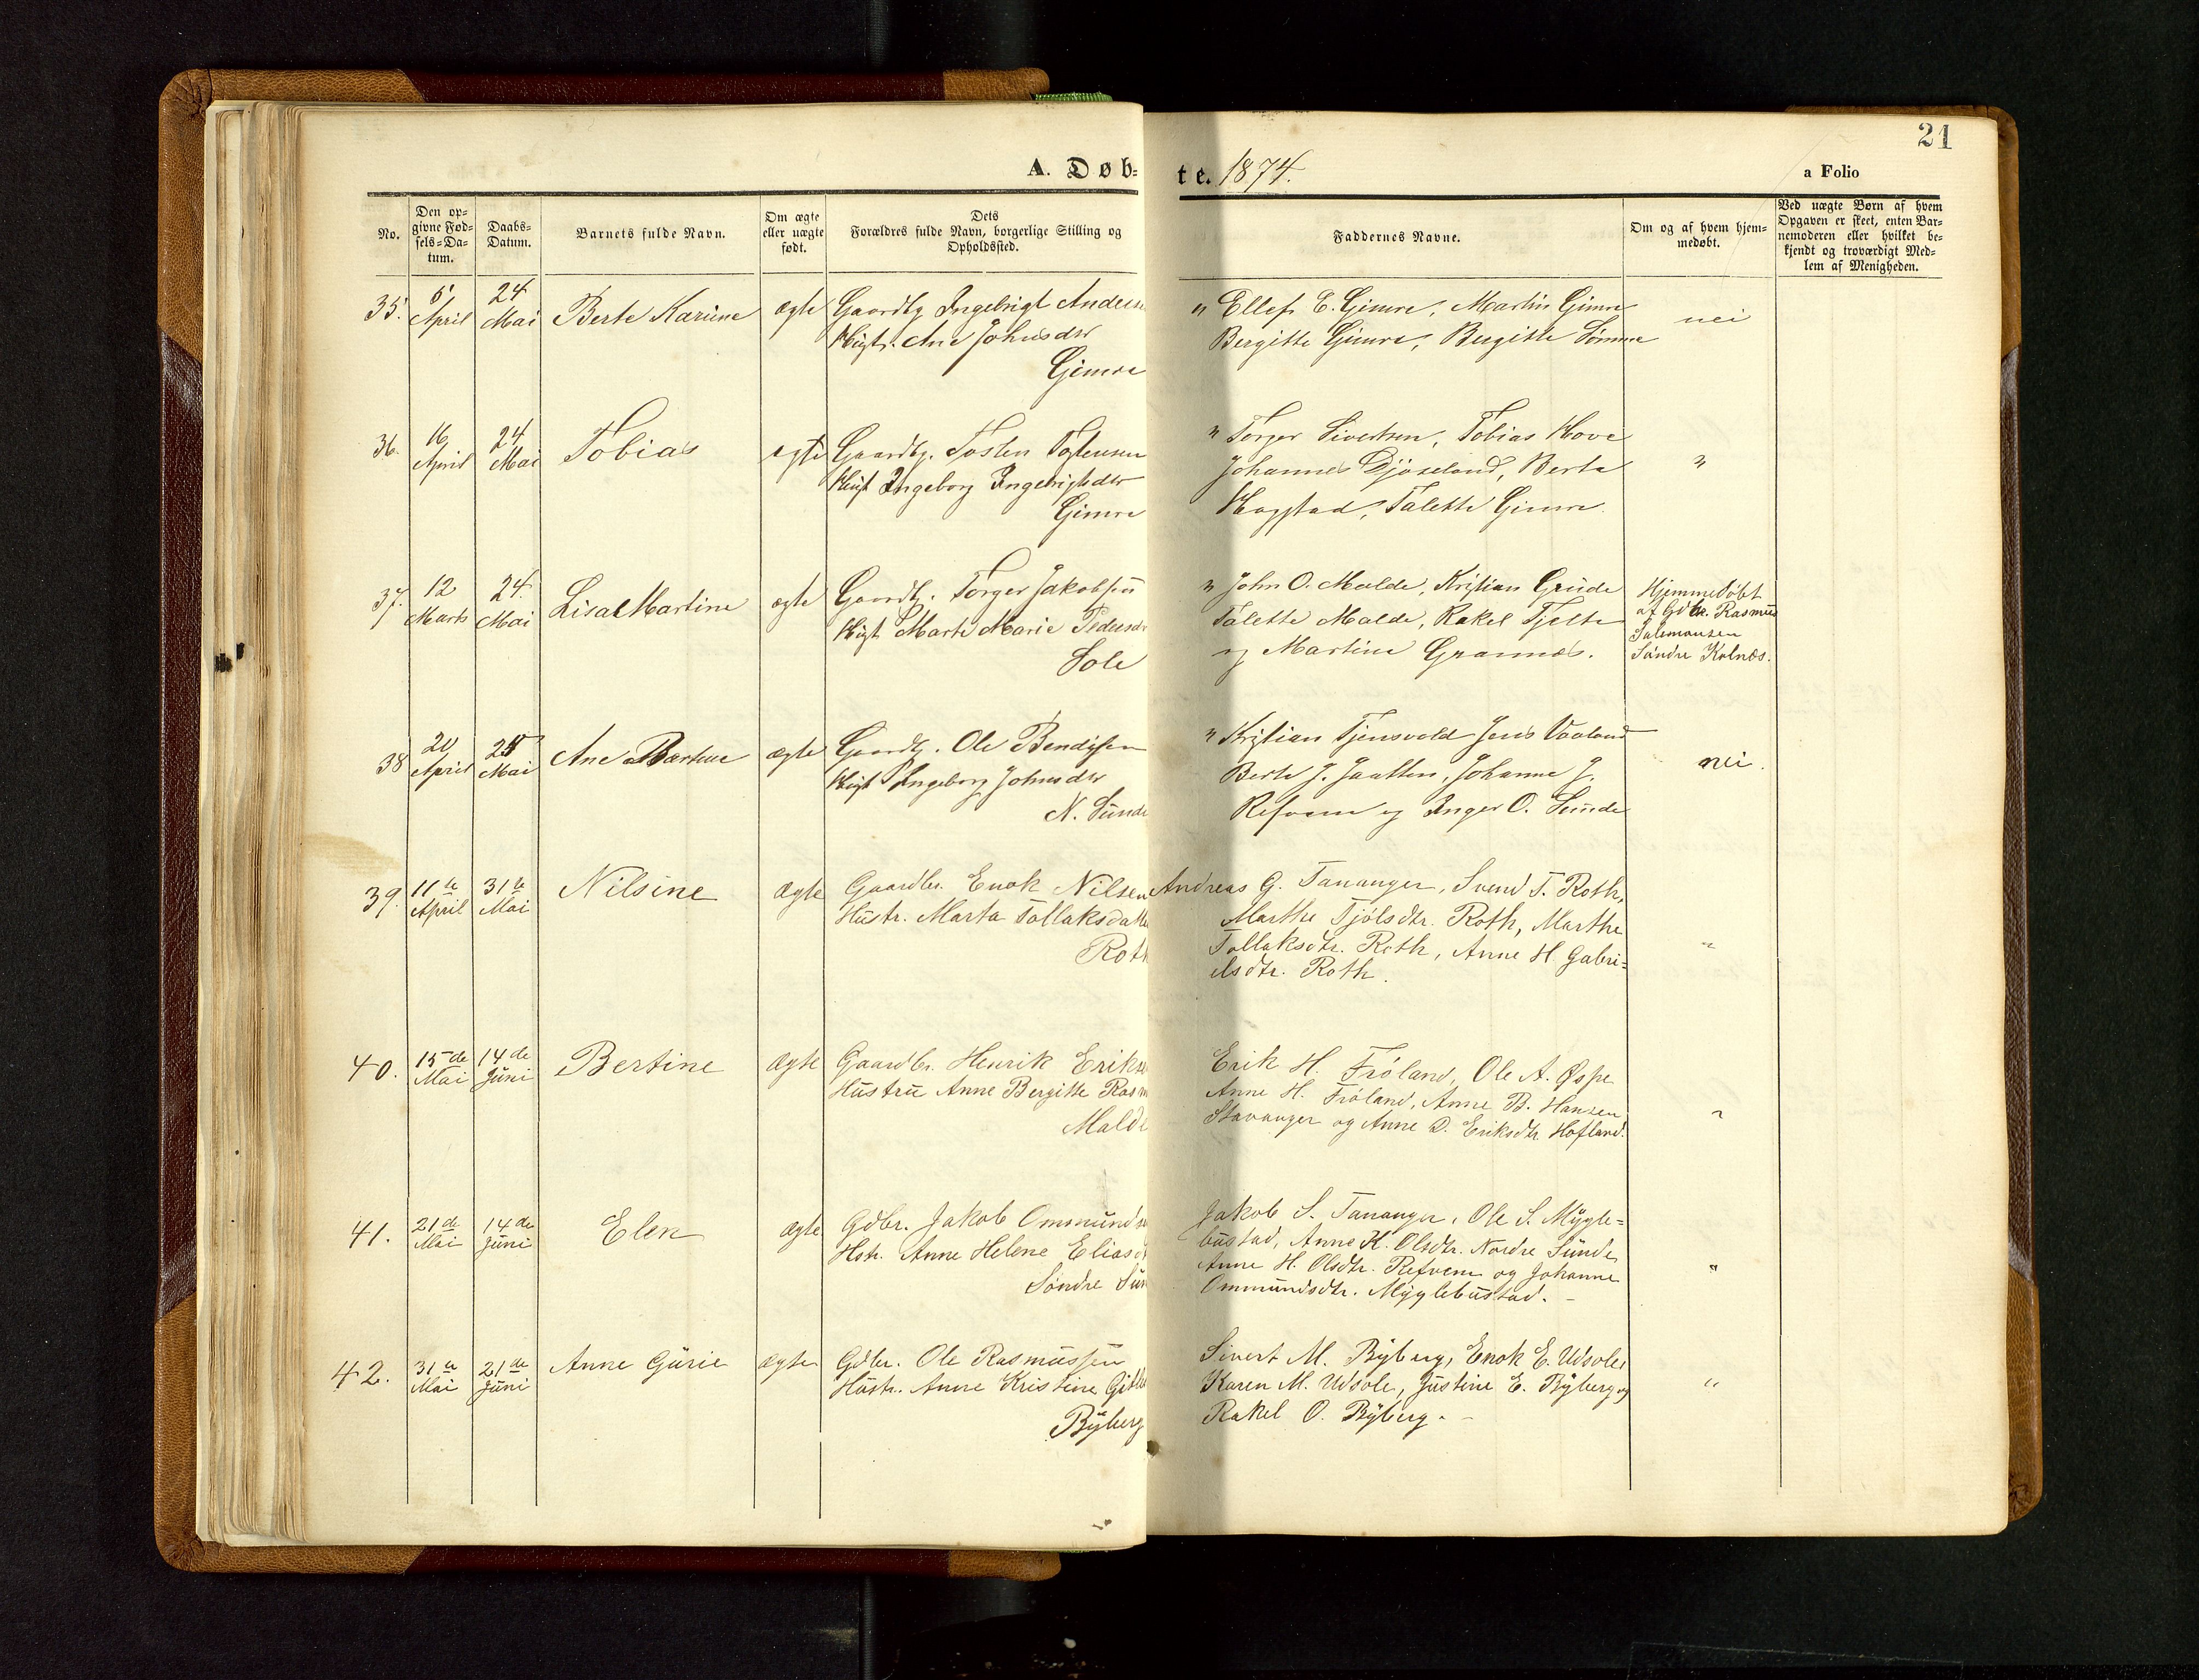 21
A. Døb-
te. 1874.
a Folio
No.
Den op-
givne Fød-
sels-Da-
tum.
Daabs-
Datum.
Barnets fulde Navn.
Om ægte
eller uægte
født.
Dets
Forældres fulde Navn, borgerlige Stilling og
Opholdssted.
Faddernes Navne.
Om og af hvem hjem-
medøbt.
Ved uægte Børn af hvem
Opgaven er skeet, enten Bar-
nemoderen eller hvilket be-
kjendt og troværdigt Med-
lem af Menigheden.
35.
April
24
Mai
Berte Karine
ægte
Gaardbg Ingebrigt Anders
Hugtr. Ane Johnsdtr
Gimre
" Ellef E. Gimre, Martin Gimre
Bergitte Gimre, Bergitte Sømme
nei
36.
16
April
24
Mai
Tobias
ægte
Gaardbg. Tosten Tostensen
Ingeborg Ingebrigtsdtr
Gimre
" Torger Sivertsen, Tobias Hove
Johannes Djøseland, Berta
Hogstad, Talette Gimre.
"
37.
12
Marts
24.
Mai
Lisa Martine
ægte
Gaardbg. Torger Jakobsen
Marte Marie Pedersdr
Sole
" John O. Malde, Kristian Grude
Talette Malde, Rakel Tjelte
og Martine Grannæs.
Hjemmedøbt
af Gdbr. Rasmus
Salemonsen
Søndre Kolnæs.
38
20
April
Mai
Ane Bertine
ægte
Gaardbg. Ole Bendigsen
Ingeborg Johnsdtr
N. Sunde
" Kristian Tjensvold Jens Vaaland
Berte J. Jaatten, Johanne J.
Refvem og Inger O. Sunde
nei.
39.
11te
April
31te
Mai
Nilsine
ægte
Gaardbr. Enok Nilsen
Hustr. Marta Tollaksdatte
Roth
Andreas G. Tananger, Svend T. Roth,
Marthe Tjølsdtr. Roth, Marthe
Tollaksdtr. Roth, Anne H Gabri-
elsdtr. Roth.
"
40.
15de
Mai
14de
Juni
Bertine
ægte
Gaardbr. Henrik Erikse
Hustru Anne Bergitte Rasm
Malde
Erik H. Frøland, Ole A. Øspe
Anne H. Frøland, Anne B. Hansen
Stavanger og Anne D. Eriksdtr. Hofland.
"
41.
21de
Mai
14de
Juni
Elen
ægte
Gdbr. Jakob Ommundse
Hstr. Anne Helene Eliasd
Søndre Sun
Jakob S. Tananger, Ole S. Mygle-
bustad, Anne K. Olsdtr. Nordre Sunde
Anne H. Olsdtr. Refvem og Johanne
Ommundsdtr. Myglebustad. -
"
42.
31te
Mai
21de
Juni
Anne Gurie
ægte
Gdbr. Ole Rasmussen
Hustr. Anne Kristine
Byberg
Sivert M. Byberg, Enok E. Udsole,
Karen M. Udsole, Justine E. Byberg og
Rakel O. Byberg. -
"